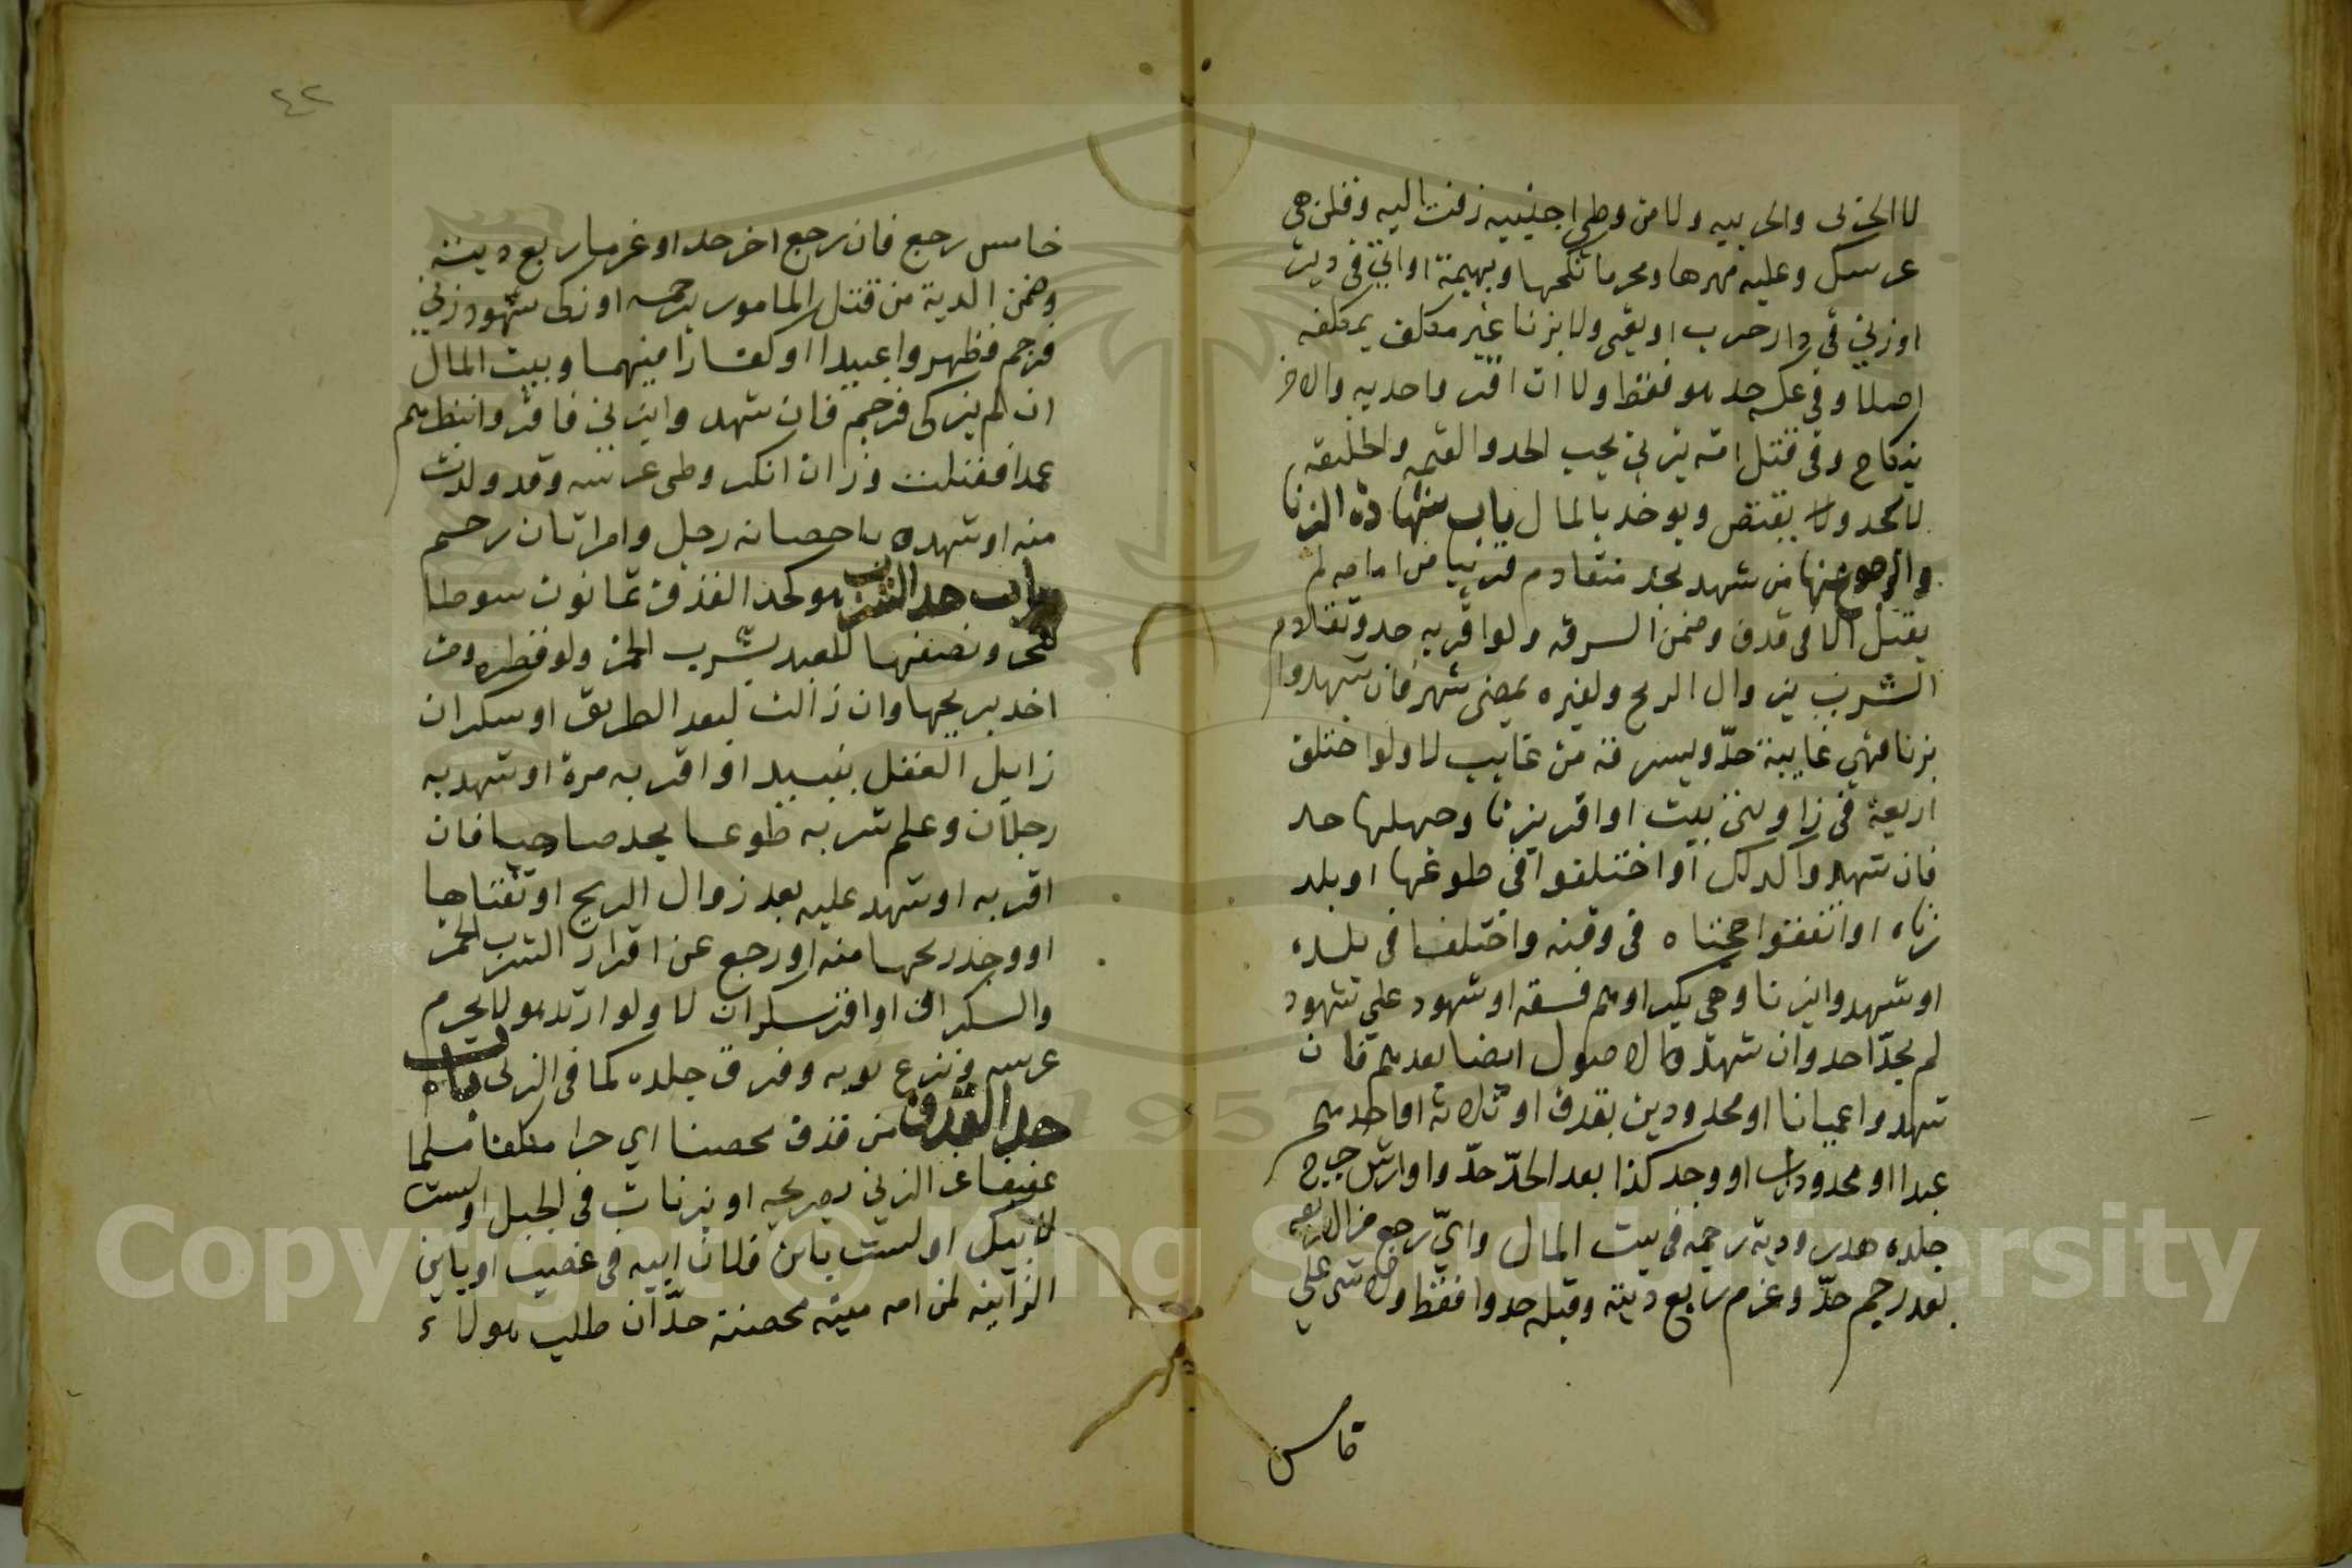 لا الحربى والحربيه ولا من وطى اجنبيه زفت اليه وقلن هى
عرسك وعليه مهرها ومحرما نكحها وبهيمة او اتى فى دبر
او زنى فى دار حرب او بغى ولا بزنا غير مكلف بمكلفه
اصلا وفى عكسه حد هو فقط ولا ان اقر واحد به والاخر
بنكاح وفى قتل امة بزنى يجب الحد والقيمه والخليفه
لا يحد ولا يقتص ويوخذ بالمال باب شهادة الزنا
والرجوع عنها من شهد بحد متقادم قريبا من امامه لم
يقبل الا فى قذف وضمن السرقه ولو اقر به حد وتقادم
الشرب بزوال الريح ولغيره بمضى شهر فان شهدوا
بزنا وهي غايبة حدّ وبسرقه من غايب لا ولو اختلف
اربعة فى زاويتى بيت او اقر بزنا وجهلها حد
فان شهدوا كذلك او اختلفوا فى طوعها او بلد
زناه او اتفقوا حجتاه فى وقته واختلفا فى بلده
او شهدوا بزنا وهى بكر او هم فسقه او شهود على شهود
لم يحدّ احد وان شهد الاصول ايضا بعدهم فان
شهدوا عميانا او محدودين بقذف او ثلاثة او احدهم
عبدا او محدود او وجد كذا بعد الحدّ حدّوا وارش جرح
جلده هدر ودية رجمه فى بيت المال وايّ رجع من الاربعه
بعد رجم حدّ وغرم ربع ديته وقبله حدوا فقط ولا شى على
خامس
خامس رجع فان رجع اخر حدا وغرما ربع ديته
وضمن الدية من قتل المامور برجمه او زكى شهود زنى
فرجم فظهروا عبيدا او كفارا منهما وبيت المال
ان لم يزكى فرجم فان شهدوا بزنى فاقروا بنظرهم
عمدا فقبلت وزان انكر وطى عرسه وقد ولدت
منه او شهد باحصانه رجل وامراتان رجم
باب حد الشرب هو كحد القذف ثمانون سوطا
للحر ونصفها للعبد بشرب الخمر ولو قطره ومن
اخذ بريحها وان زالت لبعد الطريق او سكران
زايل العقل بنبيد او اقر به مرة او شهد به
رجلان وعلم شربه طوعا يحد صاحيا فان
اقر به او شهد عليه بعد زوال الريح او تقياها
او وجد ريحها منه او رجع عن اقرار الشرب الخمر
والسكر او اقر سكران لا ولو ارتد هو لا يحرم
عرسه ونزع ثوبه وفرق جلده كما فى الزنى باب
حد القذف من قذف محصنا اي حرا مكلفا مسلما
عفيفا عن الزنى بصريحه او بزنات فى الجبل او لست
لابيك او لست بابن فلان ابيه فى غضب او بابن
الزانيه لمن امه ميته محصنة حدّ ان طلب هو لا